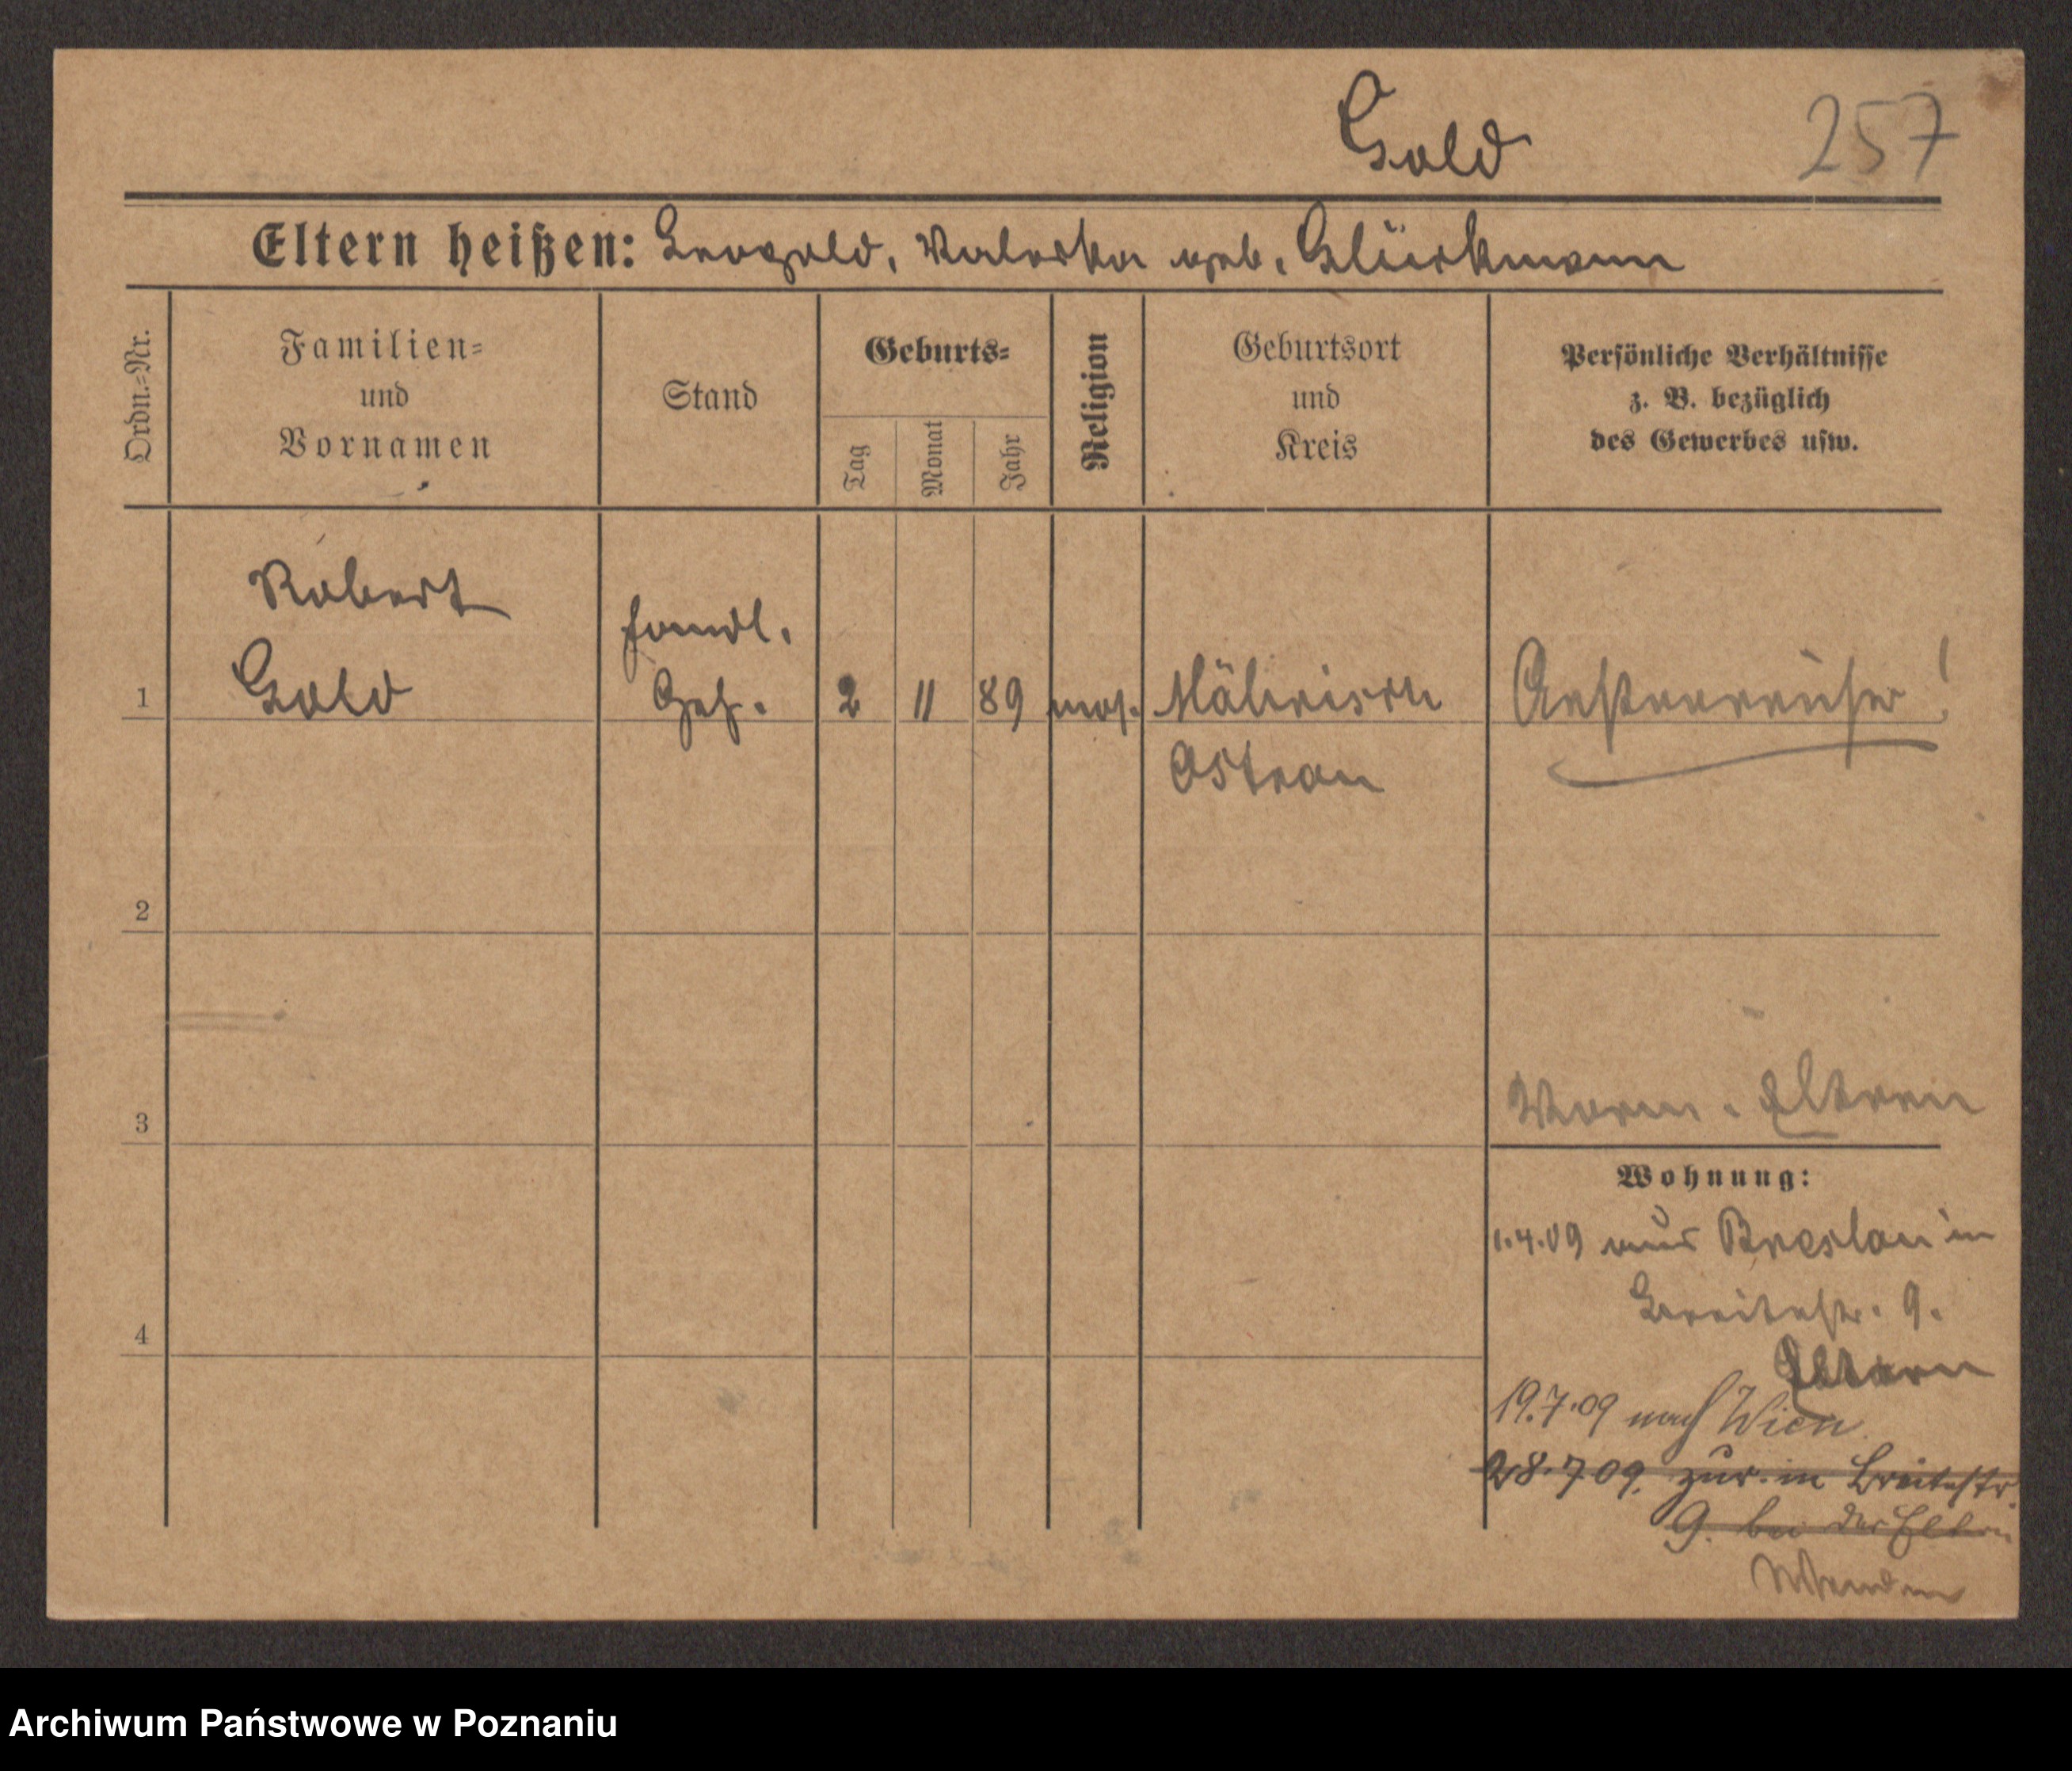 Gold 257
Eltern heißen: Leopold, Valeska geb. Glückmann
Ordn.=Nr.
Familien=
und
Vornamen
Stand
Geburts=
Tag
Monat
Jahr
Religion
Geburtsort
und
Kreis
Persönliche Verhältnisse
z. B. bezüglich
des Gewerbes usw.
Robert
Gold
Handl.
Geh.
1 2 11 89 mos. Mährisch Oesterreicher!
Ostrau
2
Eltern
3
Wohnung:
1.4.09 aus Breslau in
Breitestr. 9.
Eltern
4
19.7.09 nach Wien.
28.7.09. zur. in Breitestr.
9. bei den Eltern
Archiwum Państwowe w Poznaniu